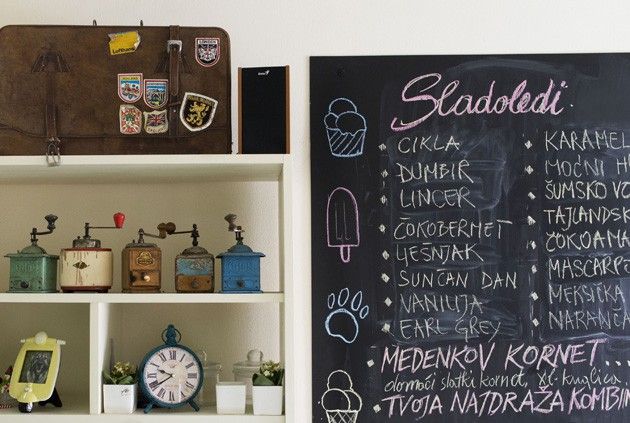 Sladoledi
CIKLA
ĐUMBIR
LINCER
ČOKOBERMET
LJEŠNJAK
SUNČAN DAN
VANILIJA
EARL GREY
KARAMEL
MOĆNI H
ŠUMSKO VO
TAJLANDSK
ČOKOAMA
MASCARP
MEKSIČKA
NARANČA
MEDENKOV KORNET...
domaći slatki kornet, xl kuglica
TVOJA NAJDRAŽA KOMBIN
Lufthansa